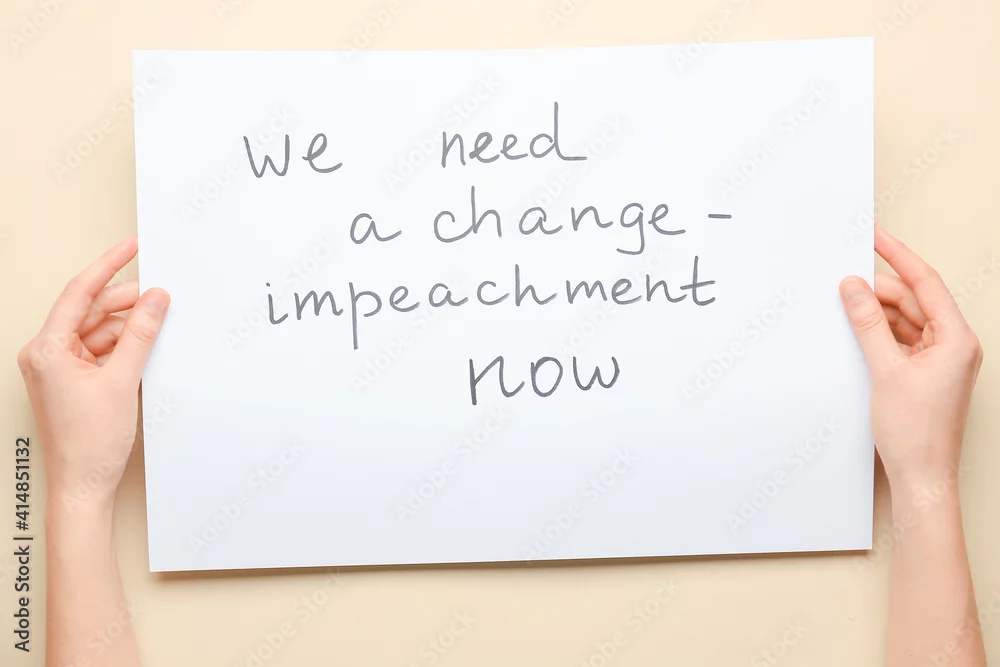 we need
a change -
impeachment
now
Adobe Stock | #414851132